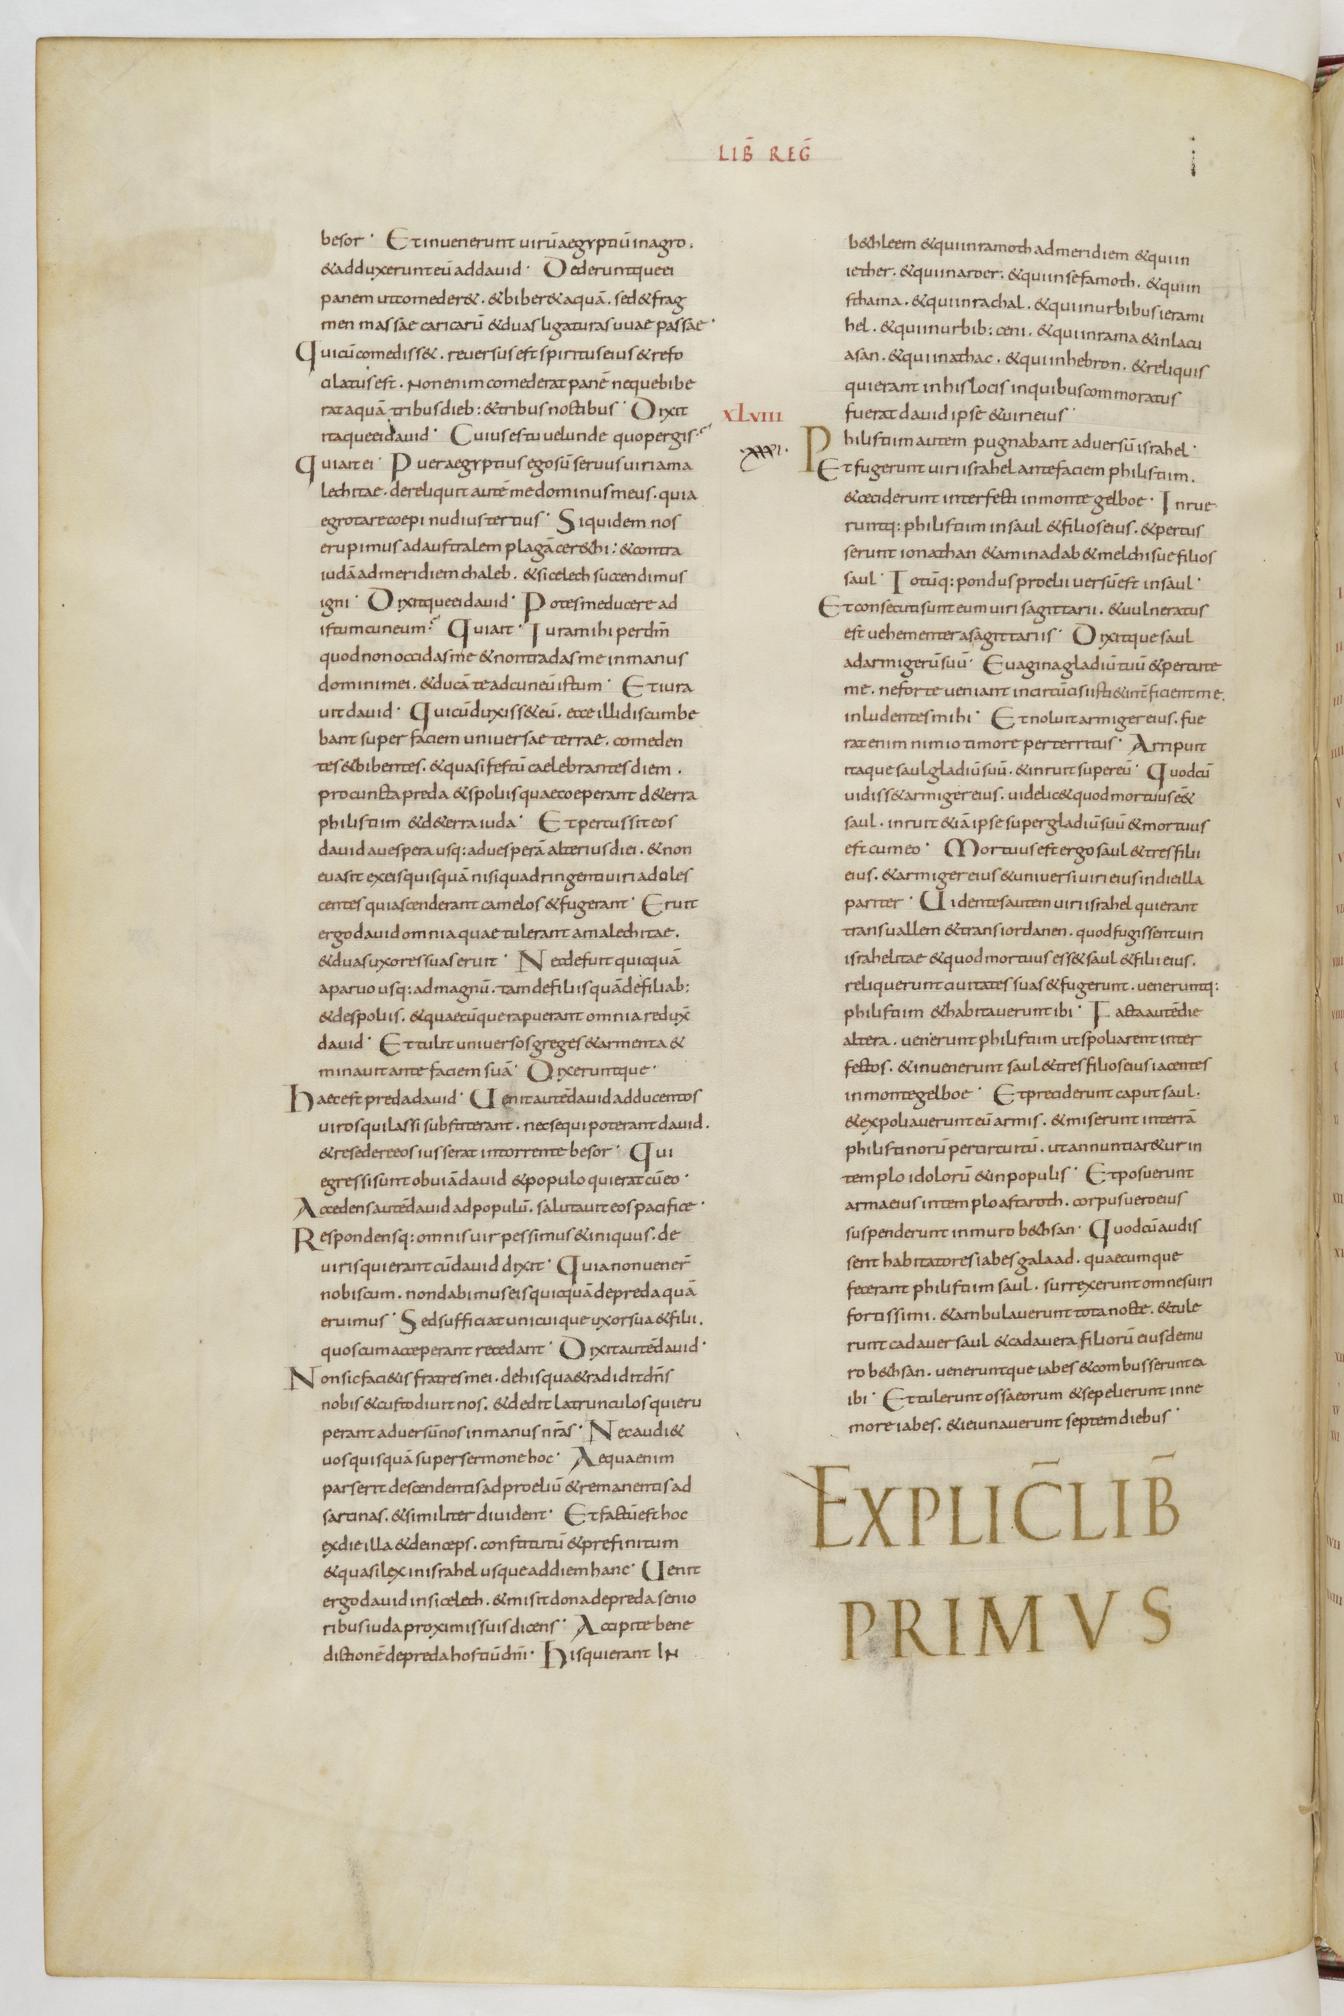 LIB̄ REḠ
I
besor · Et invenerunt virū aegyptiū in agro ·
& adduxerunt eū ad david · Deder​untque ei
panem ut comeder& · & biber& aquā · sed & frag
men massae caricarū & duas ligaturas uvae passae ·
Qui cū comediss& · reversus est spiritus eius & refo
cilatus est · Non enim comederat panē neque bibe
rat aquā tribus dieb: & tribus noctibus · Dixit
itaque ei david · Cuius es tu vel unde quo pergis ·
Qui ait ei · Puer aegyptius ego sū servus viri ama
lechitae · dereliquit autē me dominus meus · quia
egrotare coepi nudius tertius · Siquidem nos
erupimus ad australem plagā cer&hi : & contra
iudā ad meridiem chaleb · & sicelech succendimus
igni · Dixitque ei david · Potes me ducere ad
istum cuneum · Qui ait · Iura mihi per dm̄
quod non occidas me & non tradas me in manus
domini mei · & ducā te ad cuneū istum · Et iura
vit david · Qui cū duxiss& eū · ecce illi discumbe
bant super faciem universae terrae · comeden
tes & bibentes · & quasi festū caelebrantes diem ·
pro cuncta preda & spoliis quae coeperant de terra
philistiim & de terra iuda · Et percussit eos
david a vespera usq: ad vesperā alterius diei · & non
evasit ex eis quisquā nisi quadringenti viri adoles
centes qui ascenderant camelos & fugerant · Eruit
ergo david omnia quae tulerant amalechitae ·
& duas uxores suas eruit · Nec defuit quicquā
a parvo usq: ad magnū · tam de filiis quā de filiab:
& de spoliis · & quaecūque rapuerant omnia redux̄
david · Et tulit universos greges & armenta &
minavit ante faciem suā · Dixeruntque ·
Haec est preda david · Venit autē david ad ducentos
viros qui lassi substiterant · nec sequi poterant david ·
& resedere eos iusserat in torrente besor · Qui
egressi sunt obviā david & populo qui erat cū eo ·
Accedens autē david ad populū · salutavit eos pacifice ·
Respondensq: omnis vir pessimus & iniquus · de
viris qui erant cū david dixit · Quia non vener̄
nobiscum · non dabimus eis quicquā de preda quā
eruimus · Sed sufficiat unicuique uxor sua & filii ·
quos cum acceperant recedant · Dixit autē david ·
Non sic faci&is fratres mei · de his quae tradidit dn̄s
nobis & custodivit nos · & dedit latrunculos qui eru
perant adversū nos in manus nr̄as · Nec audi&
vos quisquā super sermone hoc · Aequa enim
pars erit descendentis ad proeliū & remanentis ad
sarcinas · & similiter divident · Et factū est hoc
ex die illa & deinceps · constitutū & prefinitum
& quasi lex in israhel usque ad diem hanc · Venit
ergo david in sicelech · & misit dona de preda senio
ribus iuda proximis suis dicens · Accipite bene
dictionē de preda hostiū dn̄i · His qui erant IN
b&hleem & qui in ramoth ad meridiem & qui in
iether · & qui in aroer · & qui in sefamoth · & qui in
sthama · & qui in rachal · & qui in urbibus ierami
hel · & qui in urbib: ceni · & qui in rama & in lacu
asan · & qui in athac · & qui in hebron · & reliquis
qui erant in his locis in quibus commoratus
fuerat david ipse & viri eius ·
XLVIII
XXXI ·
Philistiim autem pugnabant adversū israhel ·
Et fugerunt viri israhel ante faciem philistiim ·
& ceciderunt interfecti in monte gelboe · Inrue
runtq: philistiim in saul & filios eius · & percus
serunt ionathan & aminadab & melchisue filios
saul · Totūq: pondus proelii versū est in saul ·
Et consecuti sunt eum viri sagittarii · & vulneratus
est vehementer a sagittariis · Dixitque saul
ad armigerū suū · Evagina gladiū tuū & percute
me · ne forte veniant incircūcisi isti & interficient me ·
inludentes mihi · Et noluit armiger eius · fue
rat enim nimio timore perterritus · Arripuit
itaque saul gladiū suū · & inruit super eū · Quod cū
vidiss& armiger eius · videlic& quod mortuus ēē&
saul · inruit &iā ipse super gladiū suū & mortuus
est cum eo · Mortuus est ergo saul & tres filii
eius · & armiger eius & universi viri eius in die illa
pariter · Videntes autem viri israhel qui erant
trans vallem & trans iordanen · quod fugissent viri
israhelitae & quod mortuus ess& saul & filii eius ·
reliquerunt civitates suas & fugerunt · veneruntq:
philistiim & habitaverunt ibi · Facta autē die
altera · venerunt philistiim ut spoliarent inter
fectos · & invenerunt saul & tres filios eius iacentes
in monte gelboe · Et preciderunt caput saul ·
& expoliaverunt eū armis · & miserunt in terrā
philistinorū per circuitū · ut annuntiar&ur in
templo idolorū & in populis · Et posuerunt
arma eius in templo astaroth · corpus vero eius
suspenderunt in muro b&hsan · Quod cū audis
sent habitatores iabes galaad · quaecumque
fecerant philistiim saul · surrexerunt omnes viri
fortissimi · & ambulaverunt tota nocte · & tule
runt cadaver saul & cadavera filiorū eius de mu
ro b&hsan · veneruntque iabes & combusserunt ea
ibi · Et tulerunt ossa eorum & sepelierunt in ne
more iabes · & ieiunaverunt septem diebus ·
EXPLIC̄ LIB̄
PRIMVS